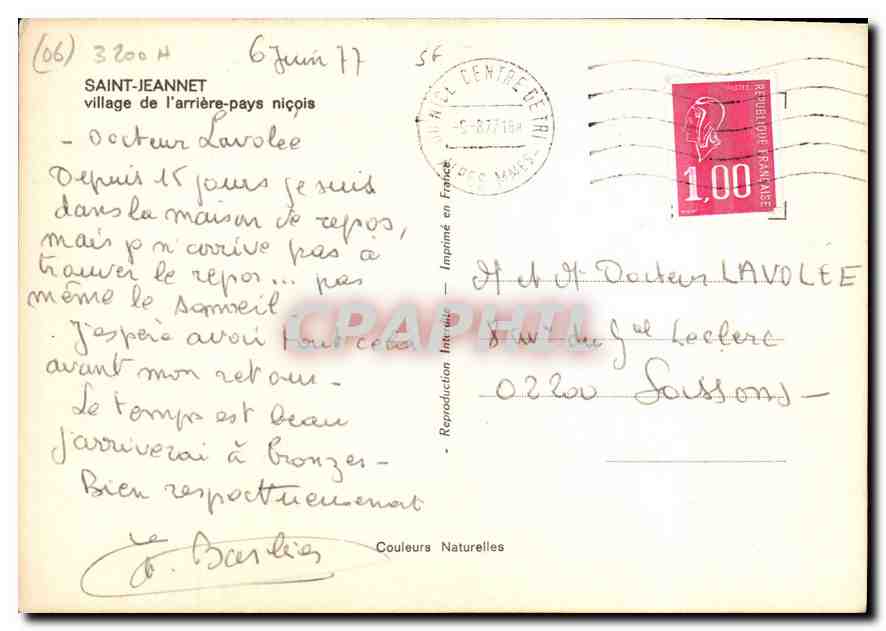 (06) 3200 H 6 Juin 77 5F
SAINT-JEANNET
village de l'arrière-pays niçois
- Docteur Lavolée
Depuis 15 jours je suis
dans la maison de repos,
mais je n'arrive pas à
trouver le repos... pas
même le sommeil
J'espère avoir tout cela
avant mon retour -
Le temps est beau
j'arriverai à bronzer -
Bien respectueusement
CENTRE DE TRI
ALPES MMES
- Reproduction Interdite - Imprimé en France
POSTES
REPUBLIQUE FRANÇAISE
1,00
M et Me Docteur LAVOLÉE
du Gal Leclerc
02200 Soissons -
Couleurs Naturelles
CPAPHIL